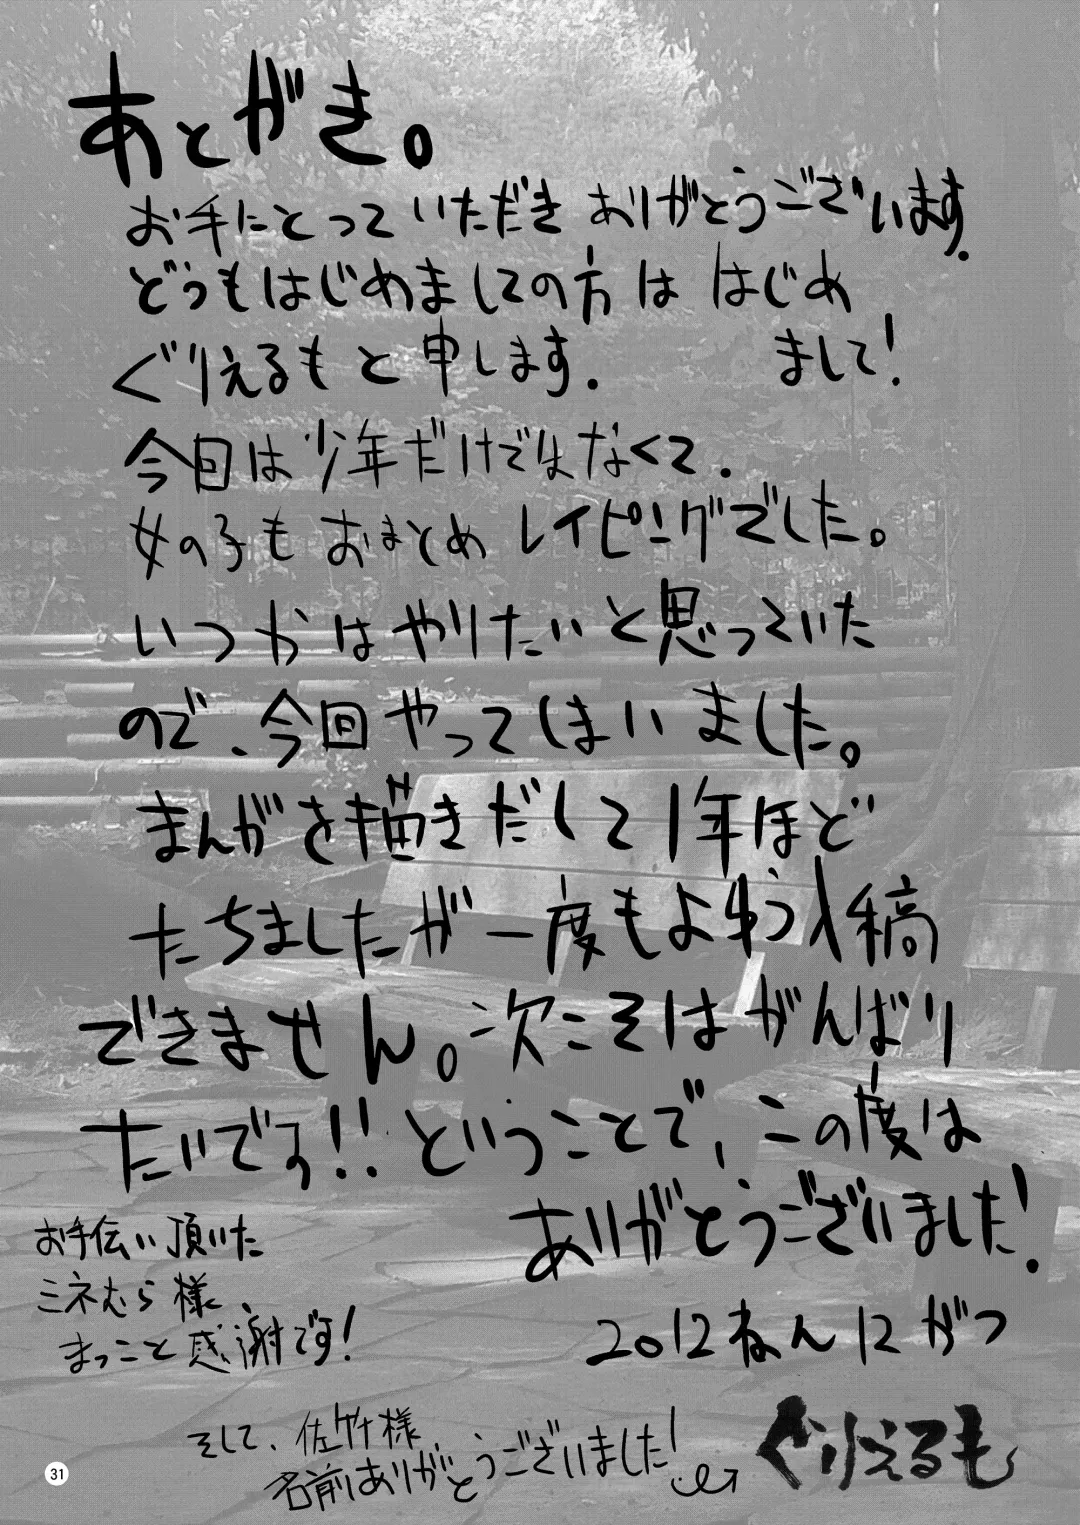 あとがき。
お手にとっていただき ありがとうございます.
どうもはじめましての方は はじめ
まして!
ぐりえるもと申します.
今回は少年だけではなくて.
女の子もおまとめレイピングでした。
いつかはやりたいと思っていた
ので、今回やってしまいました。
まんがを描きだして1年ほど
たちましたが一度もよゆう入稿
できません。次こそはがんばり
たいです!! ということで、この度は
ありがとうございました!
2012ねん12がつ
ぐりえるも
お手伝い頂いた
ミネむら様
まっこと感謝です!
そして、佐竹様
名前ありがとうございました!
31